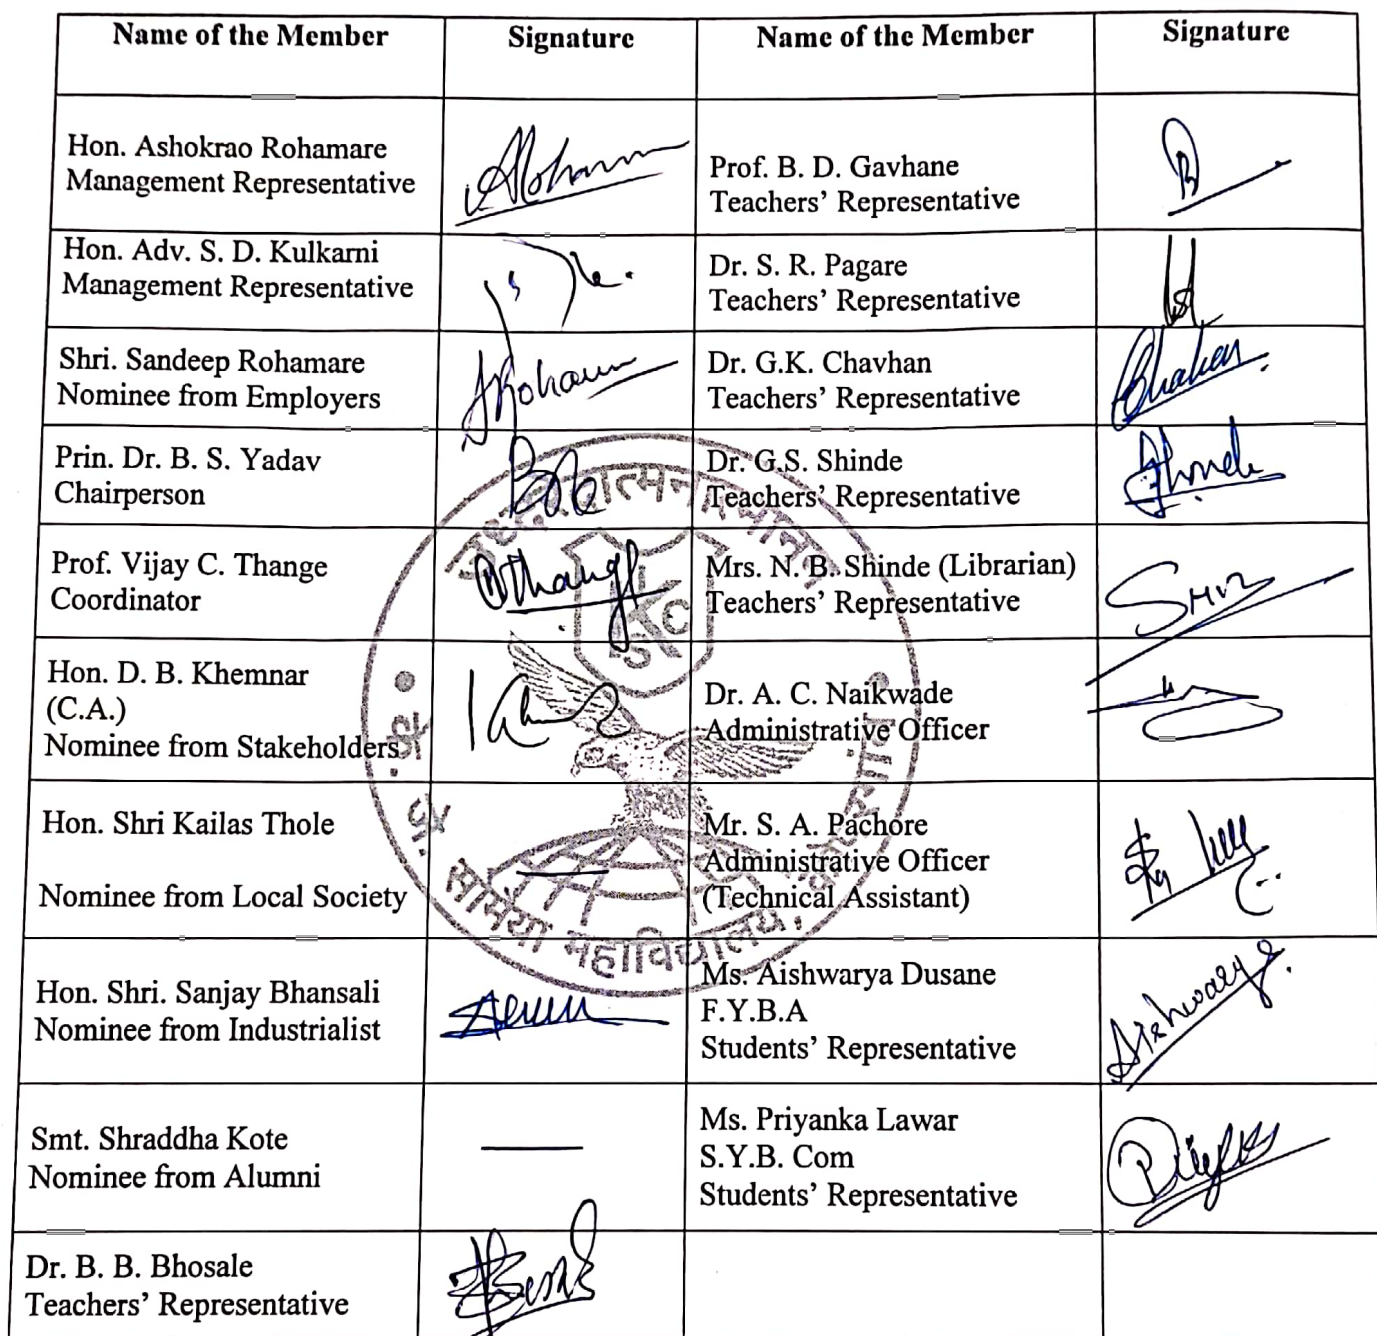 Name of the Member Signature Name of the Member Signature
Hon. Ashokrao Rohamare
Management Representative
Prof. B. D. Gavhane
Teachers' Representative
Hon. Adv. S. D. Kulkarni
Management Representative
Dr. S. R. Pagare
Teachers' Representative
Shri. Sandeep Rohamare
Nominee from Employers
Dr. G.K. Chavhan
Teachers' Representative
Prin. Dr. B. S. Yadav
Chairperson
Dr. G.S. Shinde
Teachers' Representative
Prof. Vijay C. Thange
Coordinator
Mrs. N. B. Shinde (Librarian)
Teachers' Representative
Hon. D. B. Khemnar
(C.A.)
Nominee from Stakeholders
Dr. A. C. Naikwade
Administrative Officer
Hon. Shri Kailas Thole
Nominee from Local Society
Mr. S. A. Pachore
Administrative Officer
(Technical Assistant)
Hon. Shri. Sanjay Bhansali
Nominee from Industrialist
Ms. Aishwarya Dusane
F.Y.B.A
Students' Representative
Aishwarya
Smt. Shraddha Kote
Nominee from Alumni
Ms. Priyanka Lawar
S.Y.B. Com
Students' Representative
Dr. B. B. Bhosale
Teachers' Representative
सोमैया महाविद्यालय,